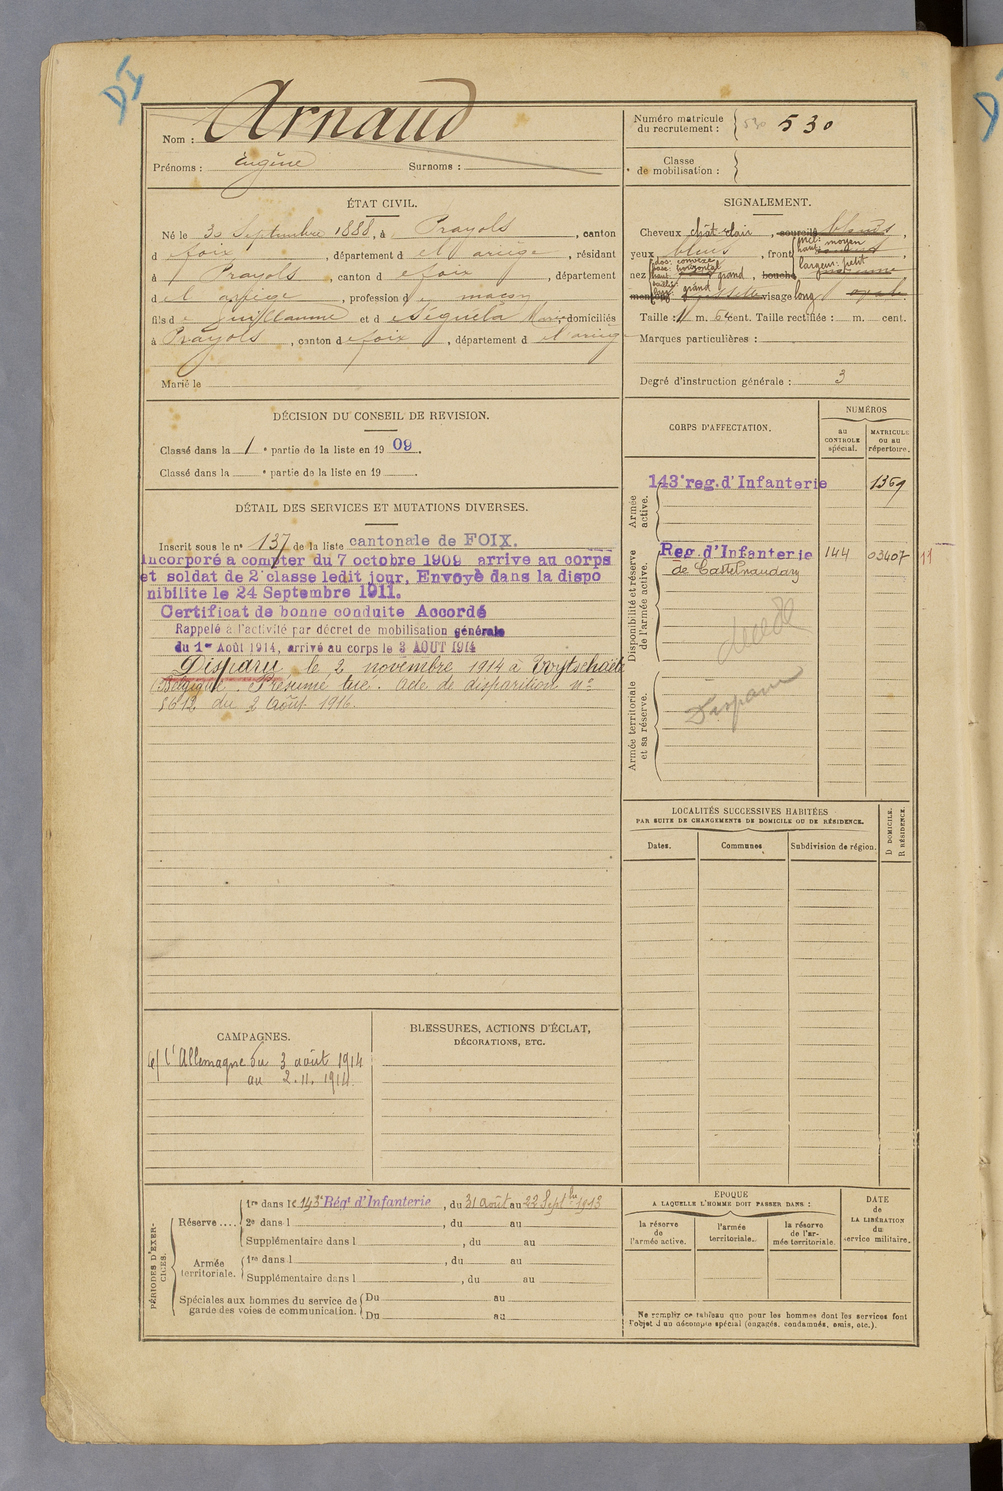 DI
Nom : Arnaud
Prénoms : Eugène Surnoms :
Numéro matricule du recrutement : 530 530
Classe de mobilisation :
ÉTAT CIVIL.
Né le 30 Septembre 1888, à Prayols, canton
d e foix, département d e l'ariège, résidant
à Prayols, canton d e foix, département
d e l'ariège, profession d e maçon
fils d e Guillaume et d e Séguéla Marie, domiciliés
à Prayols, canton d e foix, département d e l'ariège
Marié le
SIGNALEMENT.
Cheveux chât-clair, sourcils bleus,
yeux bleus, front incl: moyen haut:
largeur: petit
nez dos: convexe base: horizontal haut: grand, bouche
saillie: grand larg:
menton visage long ovale
Taille : 1 m. cent. Taille rectifiée : m. cent.
Marques particulières :
Degré d'instruction générale : 3
DÉCISION DU CONSEIL DE REVISION.
Classé dans la 1e partie de la liste en 1909.
Classé dans la e partie de la liste en 19 .
CORPS D'AFFECTATION.
NUMÉROS
au CONTROLE spécial.
MATRICULE OU AU répertoire.
Armée active.
143e reg. d'Infanterie 1369
Disponibilité et réserve de l'armée active.
Reg. d'Infanterie 144 03407 11
de Castelnaudary
décédé
Armée territoriale et sa réserve.
Disparu
DÉTAIL DES SERVICES ET MUTATIONS DIVERSES.
Inscrit sous le n° 137 de la liste cantonale de FOIX.
Incorporé à compter du 7 octobre 1909 arrive au corps
et soldat de 2e classe ledit jour. Envoyé dans la dispo
nibilite le 24 Septembre 1911.
Certificat de bonne conduite Accordé
Rappelé à l'activité par décret de mobilisation générale
du 1er Août 1914, arrivé au corps le 3 AOUT 1914
Disparu le 2 novembre 1914 à Wytschaete
(Belgique). Présumé tué. Acte de disparition n°
5612 du 2 Août 1916.
LOCALITÉS SUCCESSIVES HABITÉES
PAR SUITE DE CHANGEMENTS DE DOMICILE OU DE RÉSIDENCE.
Dates. Communes. Subdivision de région.
D DOMICILE.
R RÉSIDENCE.
CAMPAGNES.
c/ l'Allemagne du 3 août 1914
au 2.11.1914.
BLESSURES, ACTIONS D'ÉCLAT,
DÉCORATIONS, ETC.
PÉRIODES D'EXERCICES.
Réserve ....
1re dans le 143e Régt d'Infanterie, du 31 août au 22 Septbre 1913
2e dans l , du au
Supplémentaire dans l , du au
Armée territoriale.
1re dans l , du au
Supplémentaire dans l , du au
Spéciales aux hommes du service de garde des voies de communication.
Du au
Du au
ÉPOQUE
A LAQUELLE L'HOMME DOIT PASSER DANS :
la réserve de l'armée active.
l'armée territoriale.
la réserve de l'armée territoriale.
DATE de LA LIBÉRATION du service militaire.
Ne remplir ce tableau que pour les hommes dont les services font
l'objet d'un décompte spécial (engagés, condamnés, omis, etc.).